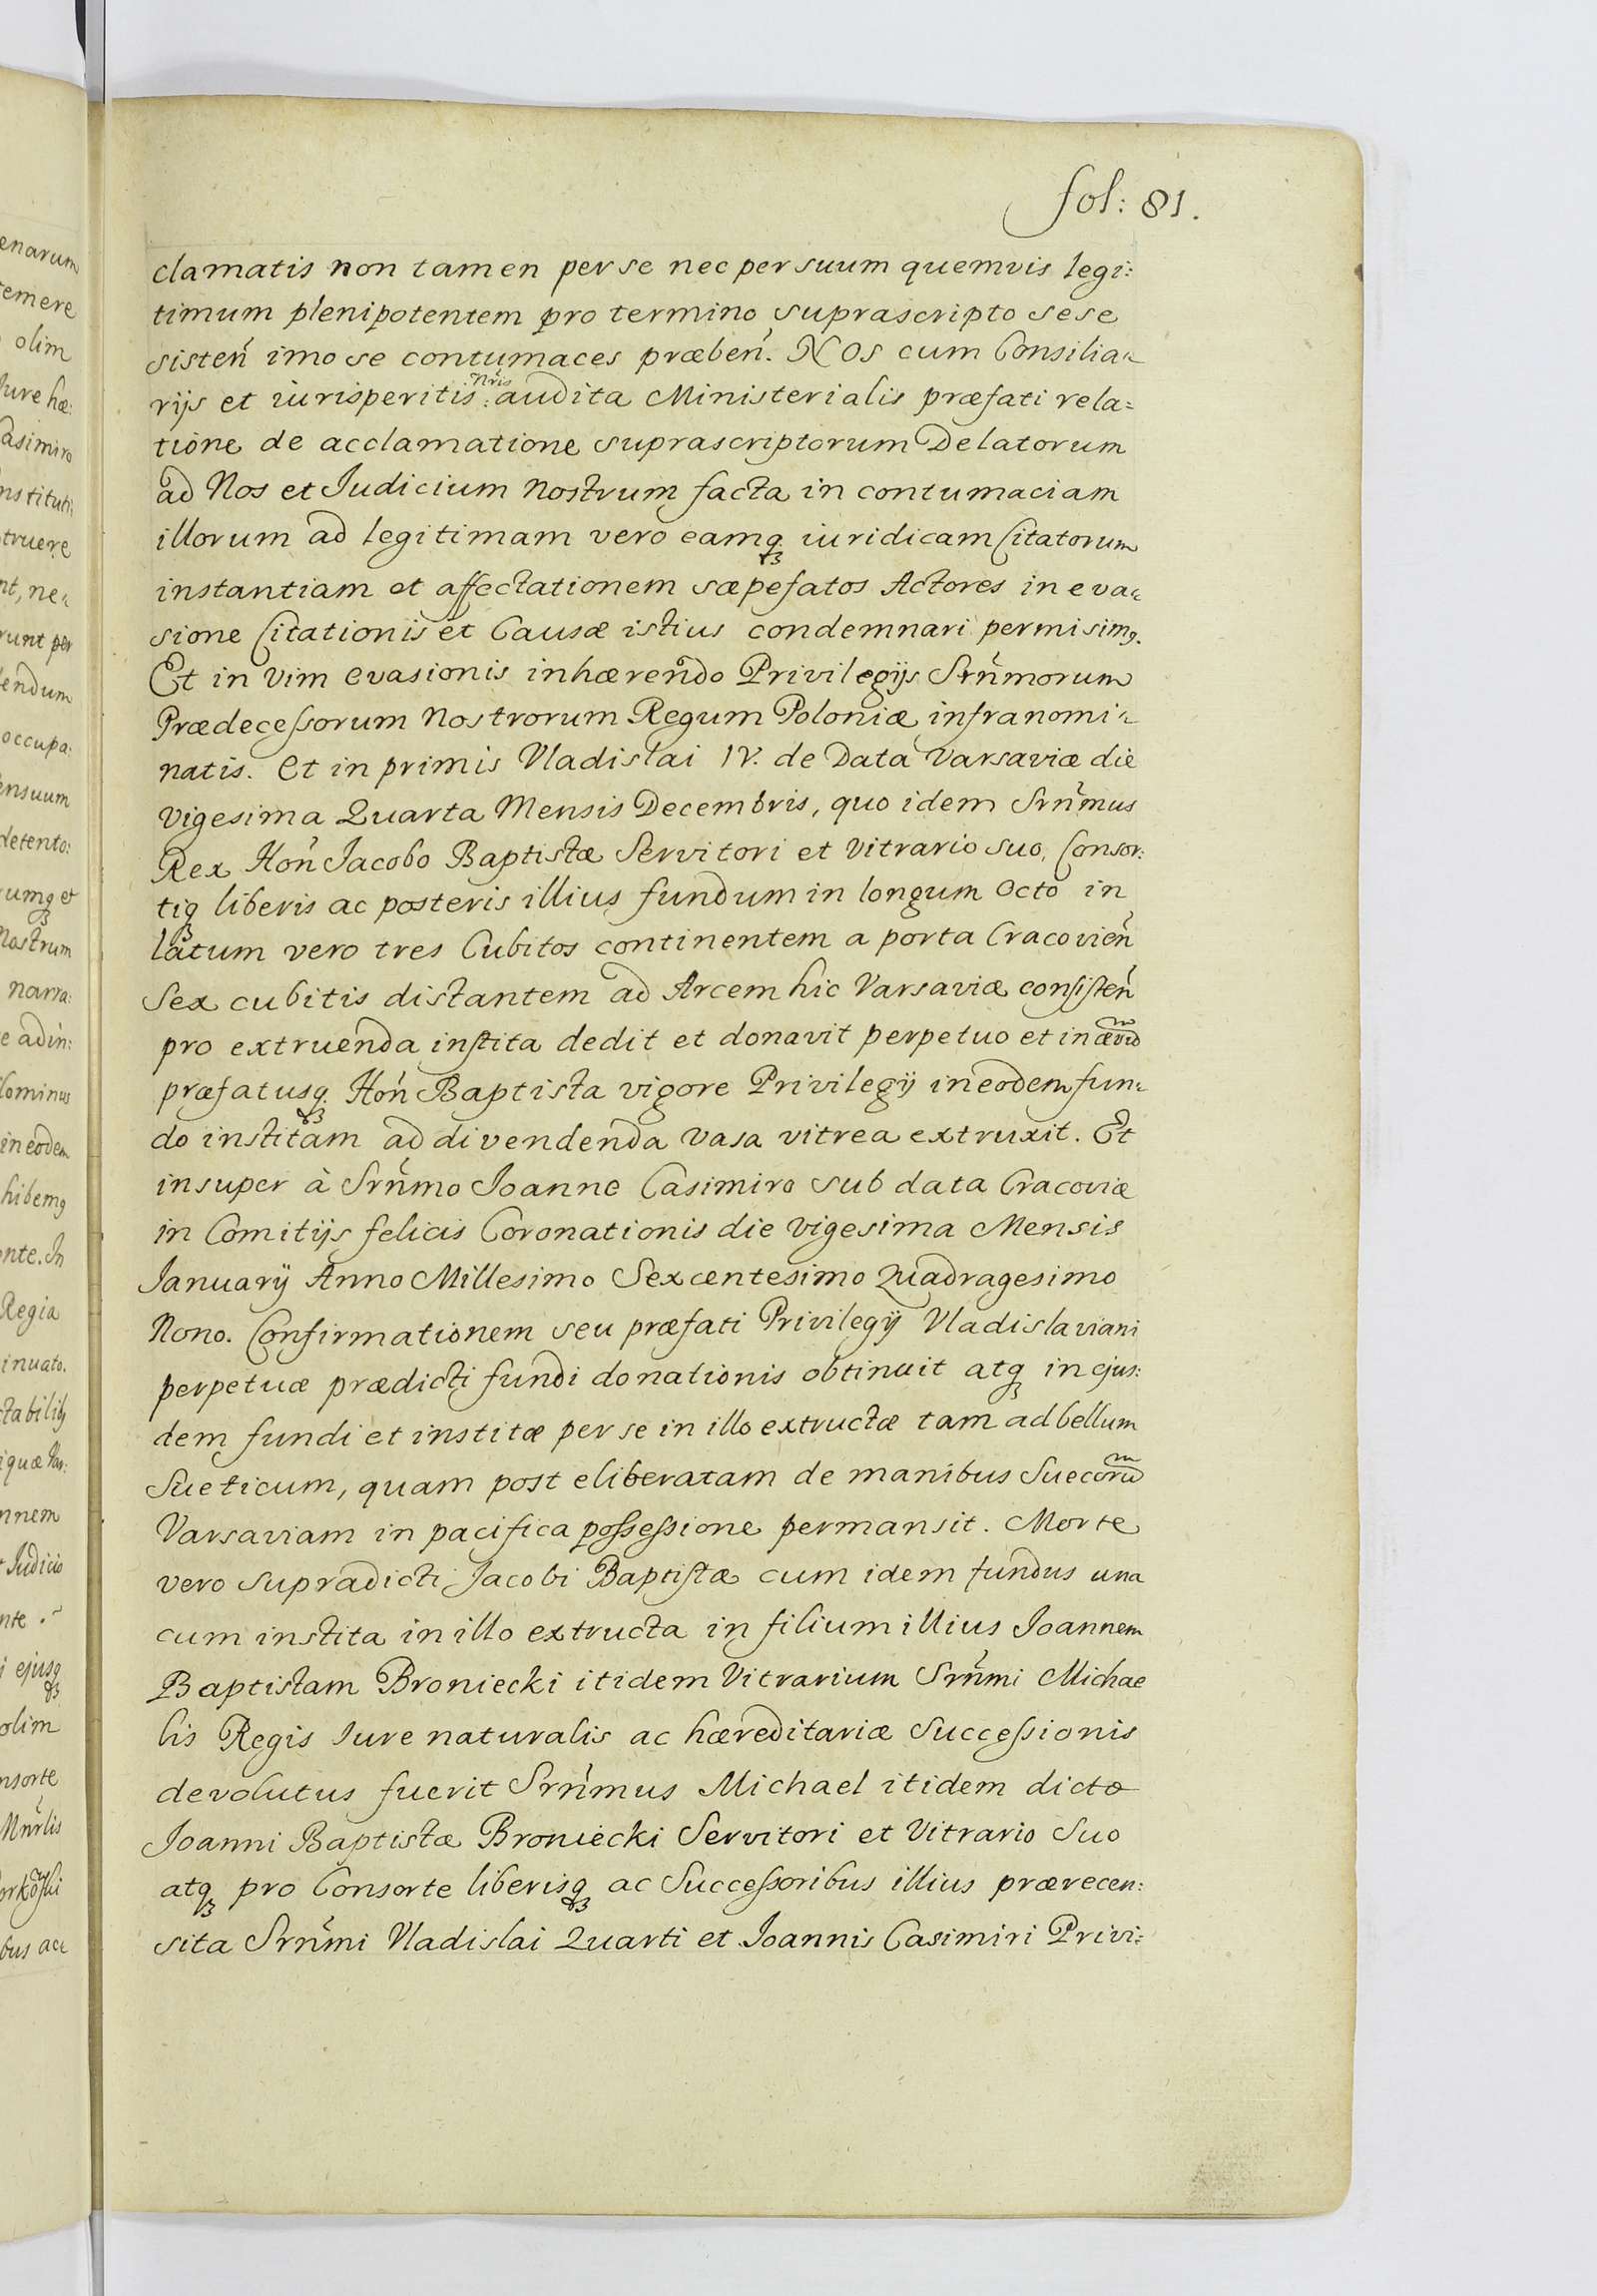 fol: 81.
clamatis non tamen per se nec per suum quemvis legi:
timum plenipotentem pro termino suprascripto sese
sisteń imo se contumaces præbeń. NOS cum Consilia=
rijs et iurisperitis Nr̃is audita Ministerialis præfati rela=
tione de acclamatione suprascriptorum Delatorum
ad Nos et Judicium nostrum facta in contumaciam
illorum ad legitimam vero eamqꝫ iuridicam Citatorum
instantiam et affectationem sæpefatos Actores in eva=
sione Citationis et Causæ istius condemnari permisimꝰ.
Et in vim evasionis inhærendo Privilegijs Srńmorum
Prædecessorum Nostrorum Regum Poloniæ infranomi=
natis. Et in primis Vladislai IV. de Data Varsaviæ die
vigesima Quarta Mensis Decembris, quo idem Srńmus
Rex Hoń Jacobo Baptistæ Servitori et Vitrario suo, Consor:
tiqꝫ liberis ac posteris illius fundum in longum Octo in
latum vero tres Cubitos continentem a porta Cracovień
Sex cubitis distantem ad Arcem hic Varsaviæ consisteń
pro extruenda instita dedit et donavit perpetuo et in ævū
præfatusqꝫ Hoń Baptista vigore Privilegij in eodem fun=
do institam ad divendenda vasa vitrea extruxit. Et
insuper à Srńmo Joanne Casimiro sub data Cracoviæ
in Comitijs felicis Coronationis die vigesima Mensis
Januarij Anno Millesimo Sexcentesimo Quadragesimo
Nono. Confirmationem seu præfati Privilegij Vladislaviani
perpetuæ prædicti fundi donationis obtinuit atqꝫ in ejus:
dem fundi et institæ per se in illo extructæ tam ad bellum
Sueticum, quam post eliberatam de manibus Suecorū
Varsaviam in pacifica possessione permansit. Morte
vero supradicti Jacobi Baptistæ cum idem fundus una
cum instita in illo extructa in filium illius Joannem
Baptistam Broniecki itidem Vitrarium Srńmi Michae
lis Regis Jure naturalis ac hæreditariæ Successionis
devolutus fuerit Srńmus Michael itidem dicto
Joanni Baptistæ Broniecki Servitori et Vitrario Suo
atqꝫ pro Consorte liberisqꝫ ac Successoribus illius prærecen:
sita Srńmi Vladislai Quarti et Joannis Casimiri Privi=